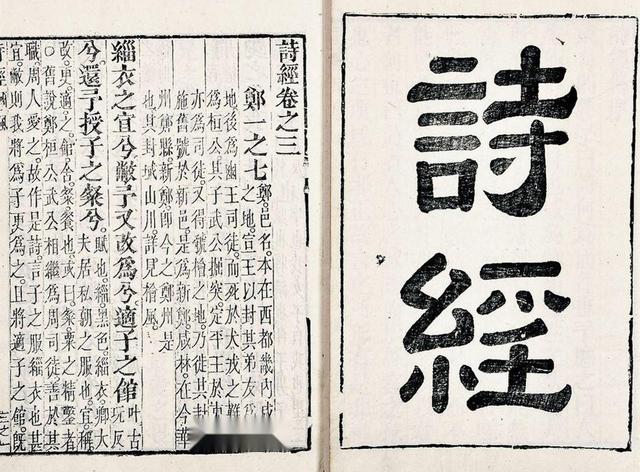 詩經
詩經卷之三
鄭一之七
鄭邑名。本在西都畿內咸
之地。宣王以封其弟友
地後爲幽王司徒。而死於犬戎之難
爲桓公其子武公掘突定平王於東
亦爲司徒。又得虢檜之地。乃徙其封
施舊號於新邑。是爲新鄭。咸林在今華
州鄭縣。新鄭即今之鄭州是
也其封域山川。詳見檜風。
緇衣之宜兮。敝予又改爲兮。適子之館叶古玩反
兮。還予授子之粲兮。賦也。緇黑色。緇衣卿大
夫居私朝之服也。宜稱
改。更。適之。館舍。粲餐也。或曰粲粟之精鑿者
○舊說鄭桓公武公相繼爲周司徒善於其
職。周人愛之。故作是詩。言子之服緇衣也甚
宜。敝則我將爲子更爲之。且將適子之館。旣
詩經國風